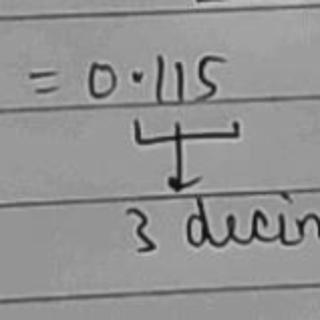 = 0.115
3 decim